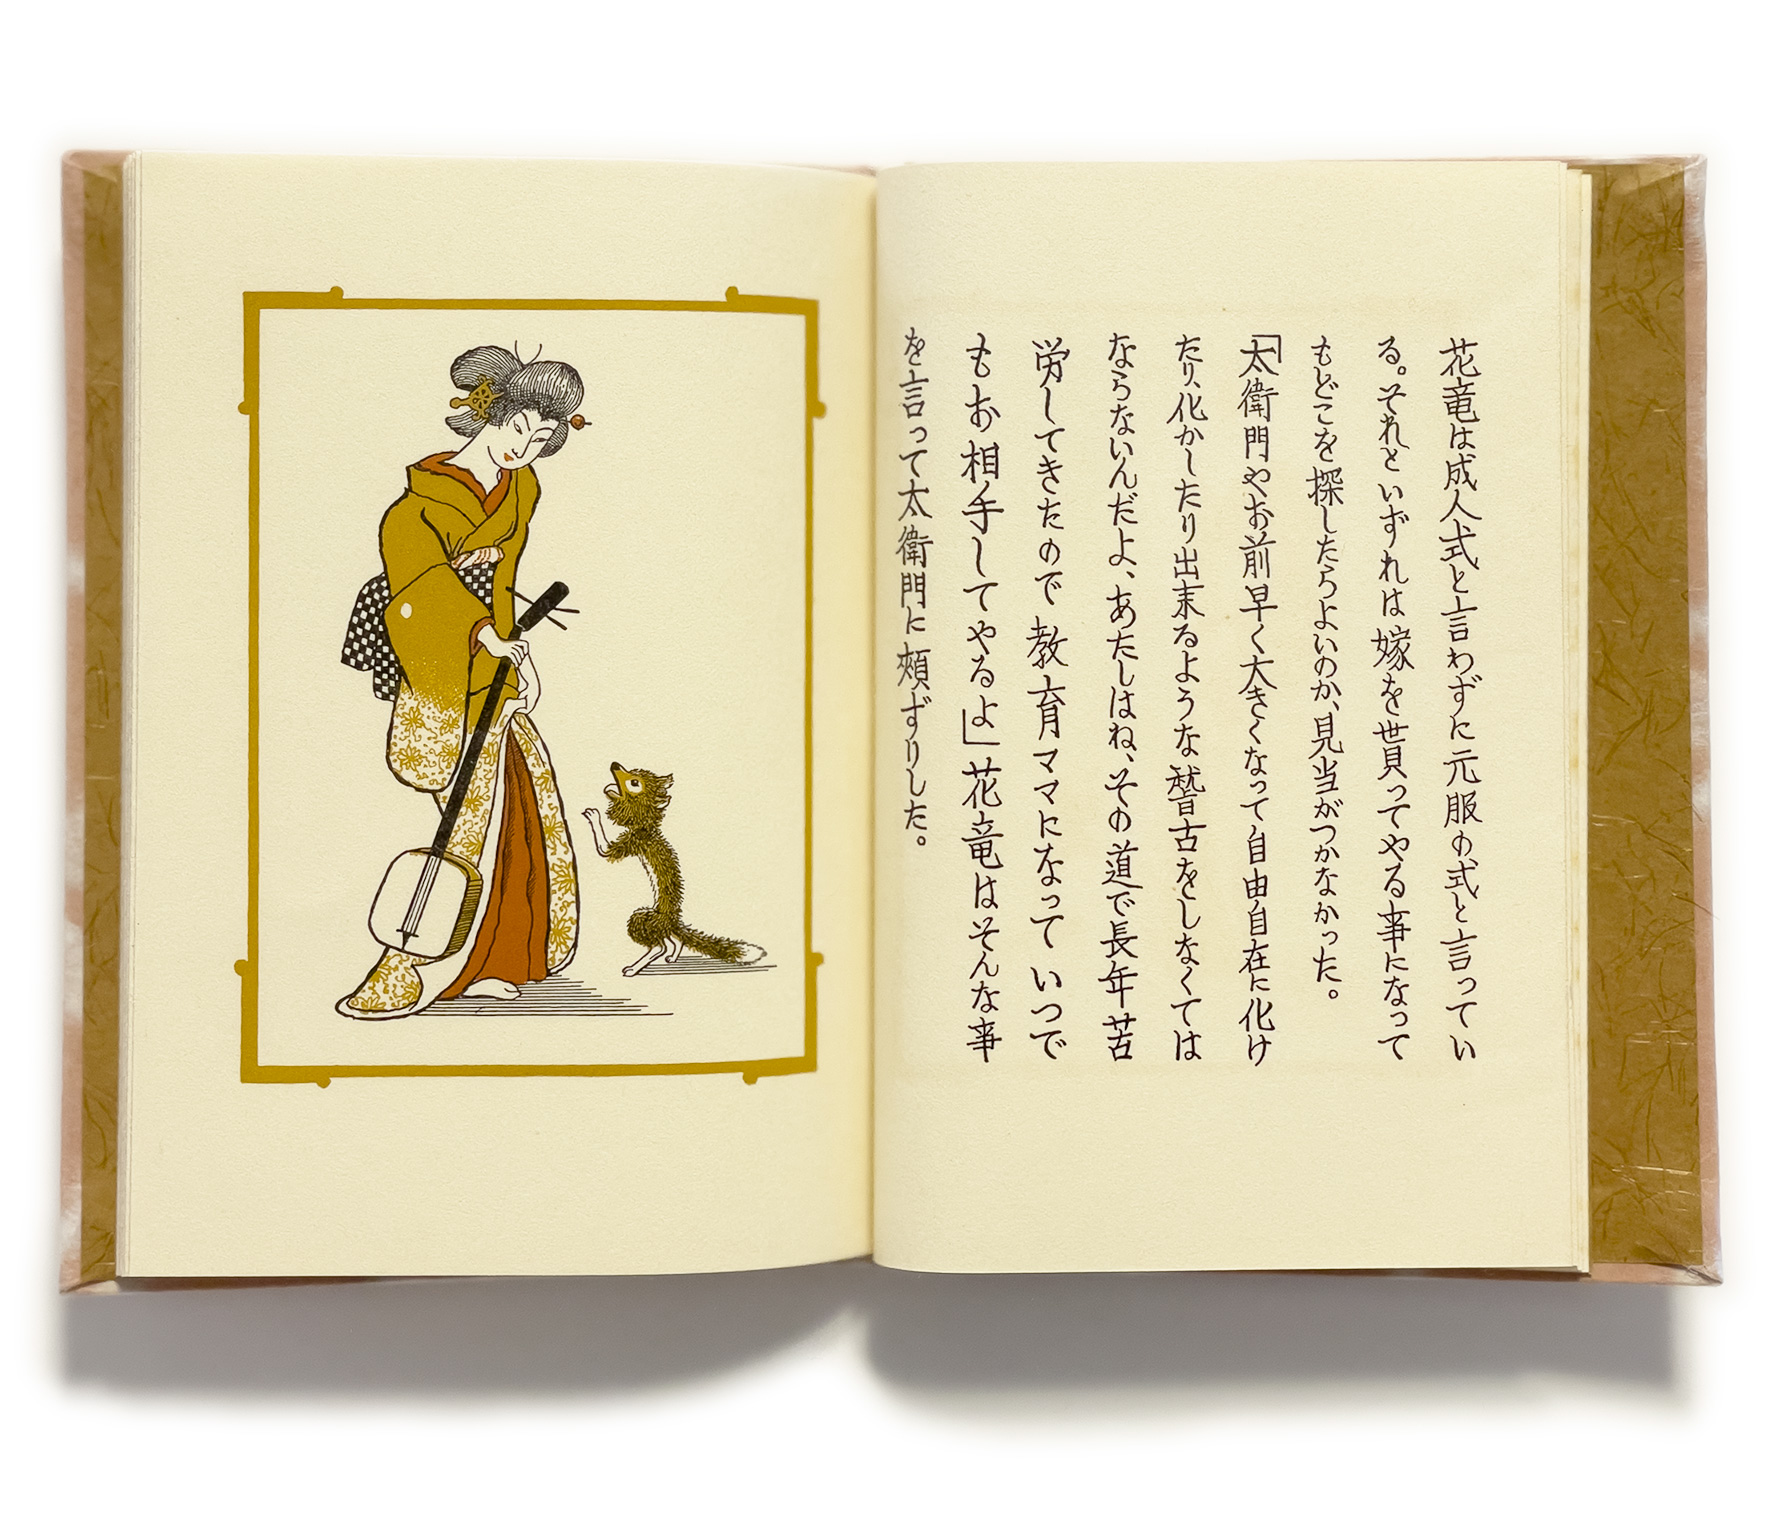 花竜は成人式と言わずに元服の式と言ってい
る。それといずれは嫁を貰ってやる事になって
もどこを探したらよいのか、見当がつかなかった。
「太衛門やお前早く大きくなって自由自在に化け
たり、化かしたり出来るような稽古をしなくては
ならないんだよ、あたしはね、その道で長年苦
労してきたので教育ママになっていつで
もお相手してやるよ」花竜はそんな事
を言って太衛門に頰ずりした。